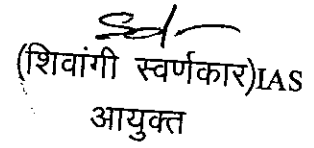 Sd/-
(शिवांगी स्वर्णकार)IAS
आयुक्त